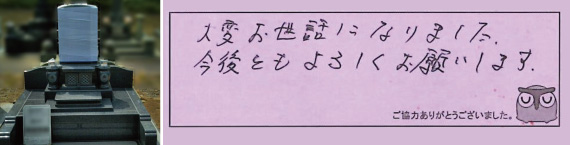 大変お世話になりました。
今後ともよろしくお願いします。
ご協力ありがとうございました。